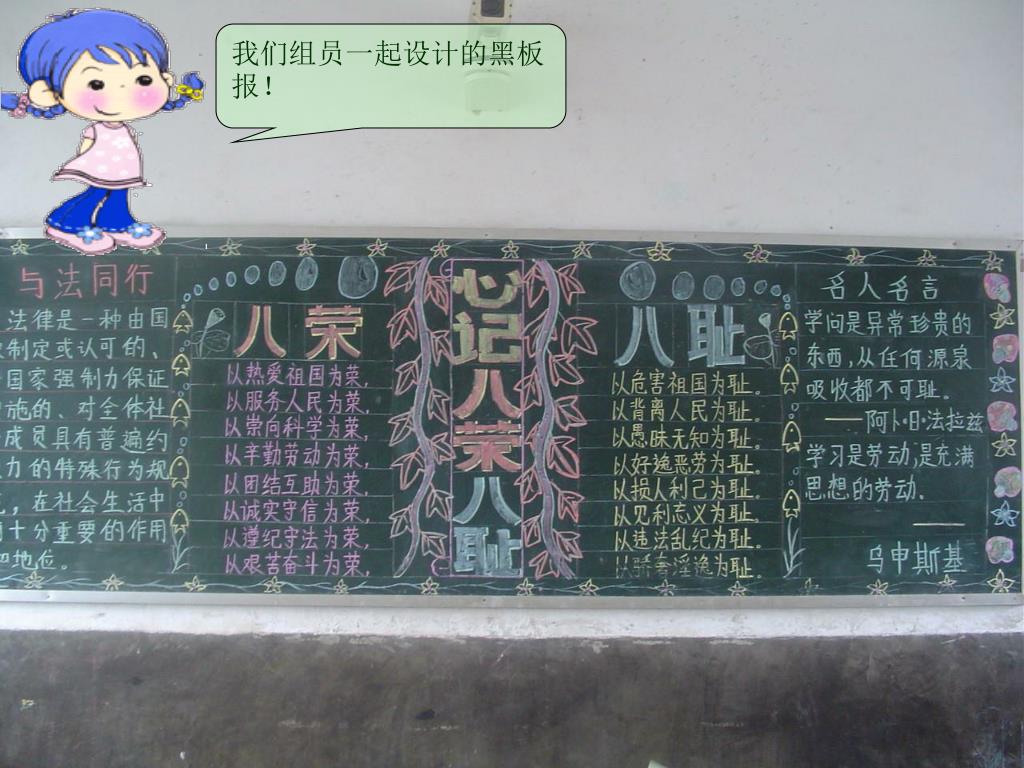 我们组员一起设计的黑板
报！
与法同行
法律是一种由国
制定或认可的、
国家强制力保证
施的、对全体社
成员具有普遍约
力的特殊行为规
，在社会生活中
十分重要的作用
地位。
八荣
以热爱祖国为荣，
以服务人民为荣，
以崇向科学为荣，
以辛勤劳动为荣，
以团结互助为荣，
以诚实守信为荣，
以遵纪守法为荣，
以艰苦奋斗为荣，
心记八荣八耻
八耻
以危害祖国为耻。
以背离人民为耻。
以愚昧无知为耻。
以好逸恶劳为耻。
以损人利己为耻。
以见利忘义为耻。
以违法乱纪为耻。
以骄奢淫逸为耻。
名人名言
学问是异常珍贵的
东西，从任何源泉
吸收都不可耻。
——阿卜·日·法拉兹
学习是劳动，是充满
思想的劳动。
——
乌申斯基